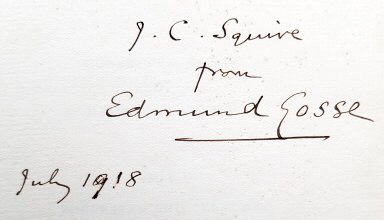 J. C. Squire
from
Edmund Gosse
July 1918